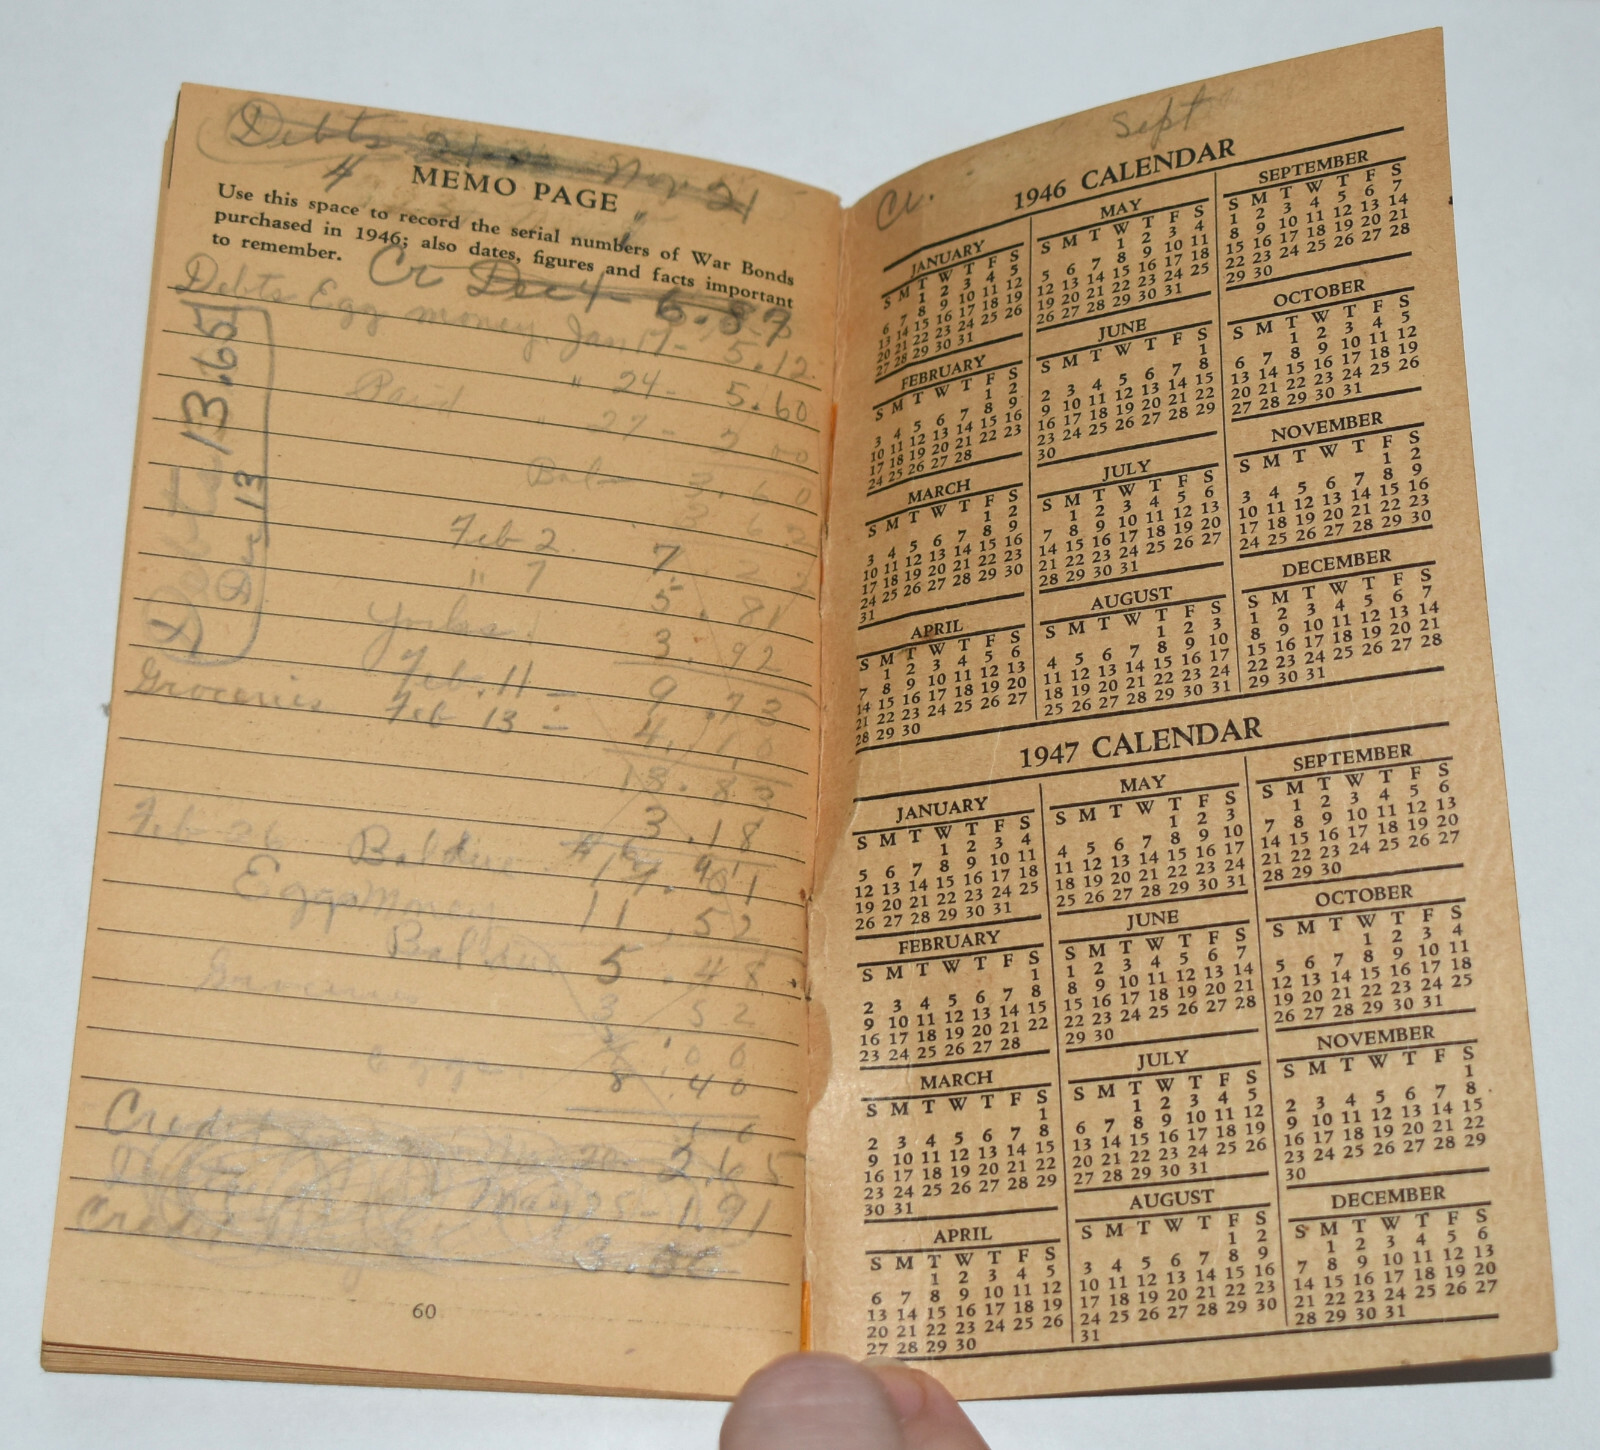 Debts Nov 21
MEMO PAGE
Use this space to record the serial numbers of War Bonds
purchased in 1946; also dates, figures and facts important
to remember.
Cr Dec 4 - 6.87
Debts Egg money Jan 17 - 5.12
" 24 - 5.60
Paid " 27 - 2 00
Bal 3.60
Feb 2. 7
" 7 5.81
3.92
Feb. 11 - 9.73
Groceries Feb 13 - 4.10
13.83
3.18
Feb 26 Baldue
Eggs Money 11.52
Baldue 5.48
Groceries 3 52
Eggs 8.40
Credit 2.65
May 25 - 1.91
Credit 3.00
Debts 13.65
Dec 13
60
Sept
Cr.
1946 CALENDAR
JANUARY
S M T W T F S
1 2 3 4 5
6 7 8 9 10 11 12
13 14 15 16 17 18 19
20 21 22 23 24 25 26
27 28 29 30 31
FEBRUARY
S M T W T F S
1 2
3 4 5 6 7 8 9
10 11 12 13 14 15 16
17 18 19 20 21 22 23
24 25 26 27 28
MARCH
S M T W T F S
1 2
3 4 5 6 7 8 9
10 11 12 13 14 15 16
17 18 19 20 21 22 23
24 25 26 27 28 29 30
31
APRIL
S M T W T F S
1 2 3 4 5 6
7 8 9 10 11 12 13
14 15 16 17 18 19 20
21 22 23 24 25 26 27
28 29 30
MAY
S M T W T F S
1 2 3 4
5 6 7 8 9 10 11
12 13 14 15 16 17 18
19 20 21 22 23 24 25
26 27 28 29 30 31
JUNE
S M T W T F S
1
2 3 4 5 6 7 8
9 10 11 12 13 14 15
16 17 18 19 20 21 22
23 24 25 26 27 28 29
30
JULY
S M T W T F S
1 2 3 4 5 6
7 8 9 10 11 12 13
14 15 16 17 18 19 20
21 22 23 24 25 26 27
28 29 30 31
AUGUST
S M T W T F S
1 2 3
4 5 6 7 8 9 10
11 12 13 14 15 16 17
18 19 20 21 22 23 24
25 26 27 28 29 30 31
SEPTEMBER
S M T W T F S
1 2 3 4 5 6 7
8 9 10 11 12 13 14
15 16 17 18 19 20 21
22 23 24 25 26 27 28
29 30
OCTOBER
S M T W T F S
1 2 3 4 5
6 7 8 9 10 11 12
13 14 15 16 17 18 19
20 21 22 23 24 25 26
27 28 29 30 31
NOVEMBER
S M T W T F S
1 2
3 4 5 6 7 8 9
10 11 12 13 14 15 16
17 18 19 20 21 22 23
24 25 26 27 28 29 30
DECEMBER
S M T W T F S
1 2 3 4 5 6 7
8 9 10 11 12 13 14
15 16 17 18 19 20 21
22 23 24 25 26 27 28
29 30 31
1947 CALENDAR
JANUARY
S M T W T F S
1 2 3 4
5 6 7 8 9 10 11
12 13 14 15 16 17 18
19 20 21 22 23 24 25
26 27 28 29 30 31
FEBRUARY
S M T W T F S
1
2 3 4 5 6 7 8
9 10 11 12 13 14 15
16 17 18 19 20 21 22
23 24 25 26 27 28
MARCH
S M T W T F S
1
2 3 4 5 6 7 8
9 10 11 12 13 14 15
16 17 18 19 20 21 22
23 24 25 26 27 28 29
30 31
APRIL
S M T W T F S
1 2 3 4 5
6 7 8 9 10 11 12
13 14 15 16 17 18 19
20 21 22 23 24 25 26
27 28 29 30
MAY
S M T W T F S
1 2 3
4 5 6 7 8 9 10
11 12 13 14 15 16 17
18 19 20 21 22 23 24
25 26 27 28 29 30 31
JUNE
S M T W T F S
1 2 3 4 5 6 7
8 9 10 11 12 13 14
15 16 17 18 19 20 21
22 23 24 25 26 27 28
29 30
JULY
S M T W T F S
1 2 3 4 5
6 7 8 9 10 11 12
13 14 15 16 17 18 19
20 21 22 23 24 25 26
27 28 29 30 31
AUGUST
S M T W T F S
1 2
3 4 5 6 7 8 9
10 11 12 13 14 15 16
17 18 19 20 21 22 23
24 25 26 27 28 29 30
31
SEPTEMBER
S M T W T F S
1 2 3 4 5 6
7 8 9 10 11 12 13
14 15 16 17 18 19 20
21 22 23 24 25 26 27
28 29 30
OCTOBER
S M T W T F S
1 2 3 4
5 6 7 8 9 10 11
12 13 14 15 16 17 18
19 20 21 22 23 24 25
26 27 28 29 30 31
NOVEMBER
S M T W T F S
1
2 3 4 5 6 7 8
9 10 11 12 13 14 15
16 17 18 19 20 21 22
23 24 25 26 27 28 29
30
DECEMBER
S M T W T F S
1 2 3 4 5 6
7 8 9 10 11 12 13
14 15 16 17 18 19 20
21 22 23 24 25 26 27
28 29 30 31